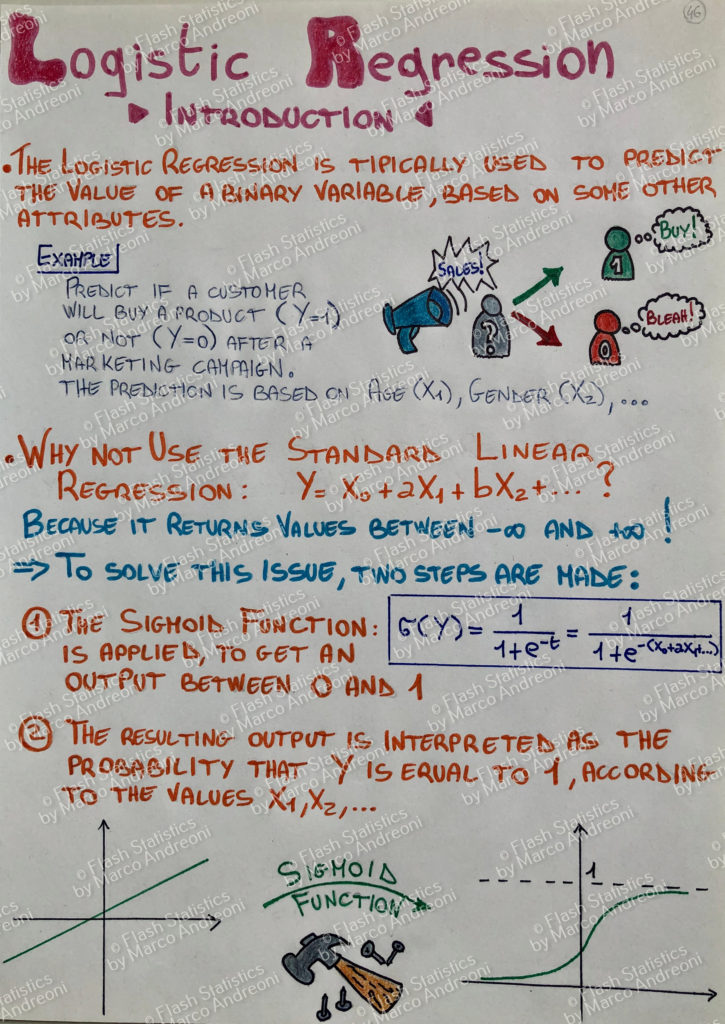 46
Logistic Regression
INTRODUCTION
• THE LOGISTIC REGRESSION IS TIPICALLY USED TO PREDICT
THE VALUE OF A BINARY VARIABLE, BASED ON SOME OTHER
ATTRIBUTES.
EXAMPLE
PREDICT IF A CUSTOMER
WILL BUY A PRODUCT (Y=1)
OR NOT (Y=0) AFTER A
MARKETING CAMPAIGN.
THE PREDICTION IS BASED ON AGE (X₁), GENDER (X₂), ...
SALES!
?
1
BUY!
0
BLEAH!
• WHY NOT USE THE STANDARD LINEAR
REGRESSION: Y= X₀+aX₁+bX₂+... ?
BECAUSE IT RETURNS VALUES BETWEEN -∞ AND +∞ !
=> TO SOLVE THIS ISSUE, TWO STEPS ARE MADE:
① THE SIGMOID FUNCTION:
IS APPLIED, TO GET AN
OUTPUT BETWEEN 0 AND 1
σ(Y) = 1/(1+e^-t) = 1/(1+e^-(X₀+aX₁+...))
② THE RESULTING OUTPUT IS INTERPRETED AS THE
PROBABILITY THAT Y IS EQUAL TO 1, ACCORDING
TO THE VALUES X₁, X₂, ...
SIGMOID
FUNCTION
1
© Flash Statistics
by Marco Andreoni